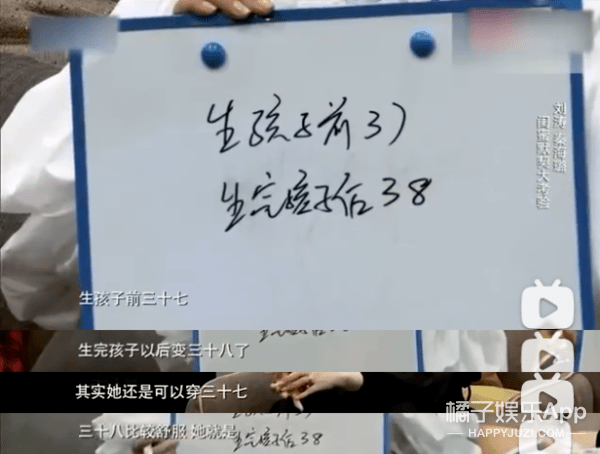 生孩子前37
生完孩子后38
刘涛 秦海璐
闺蜜默契大考验
生孩子前三十七
生完孩子以后变三十八了
其实她还是可以穿三十七
三十八比较舒服 她就是
生完孩子后38
橘子娱乐App
HAPPYJUZI.COM